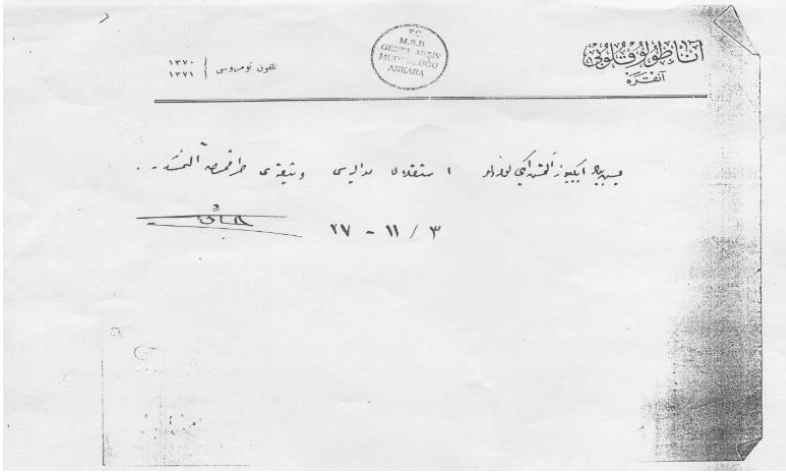 آناطولو قلوبی
آنقره
T.C.
M.S.B.
GENEL ARŞİV
MÜDÜRLÜĞÜ
ANKARA
تلفون نومروسی
١٣٧٠
١٣٧١
بیك ایکیوز آلتمش ایکی نومرولو استقلال مدالیه‌سی وثیقه‌سی طرفمدن آلنمشدر.
٣ / ١١ - ٢٧